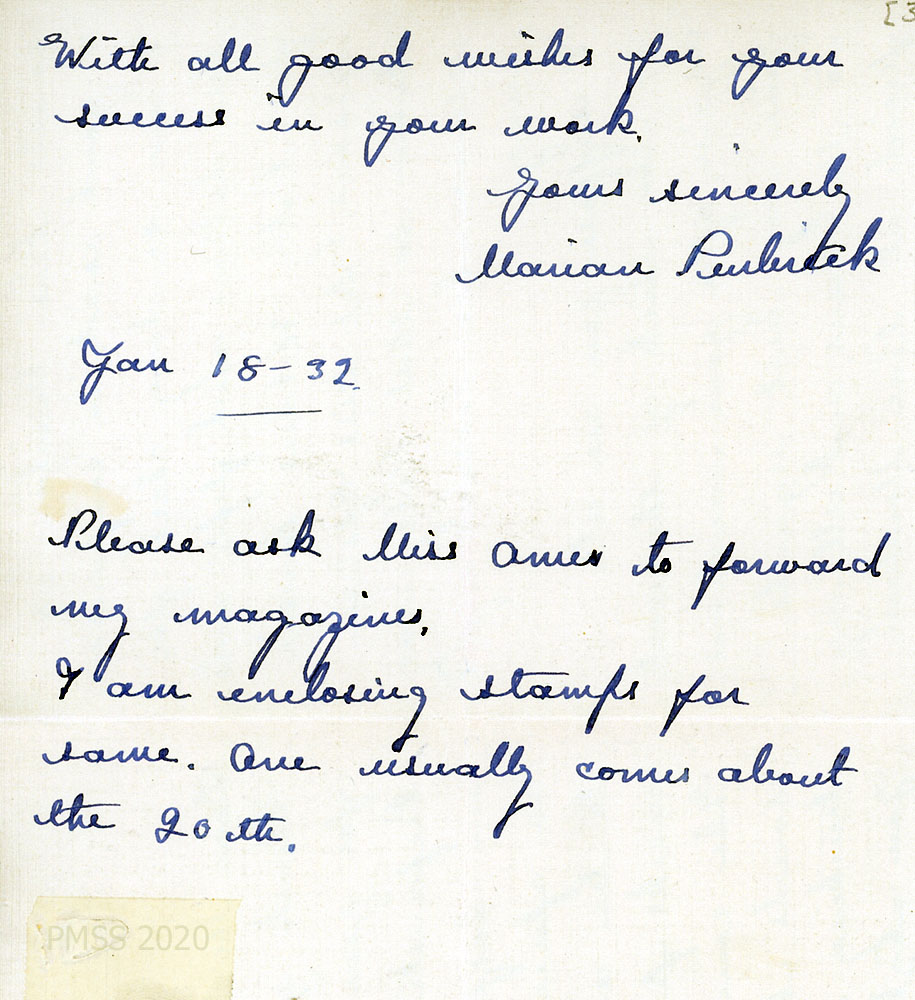 [3
With all good wishes for your
success in your work.
Yours sincerely
Marian
Jan 18-32
Please ask Miss Ames to forward
my magazines.
I am enclosing stamps for
same. One usually comes about
the 20th.
PMSS 2020